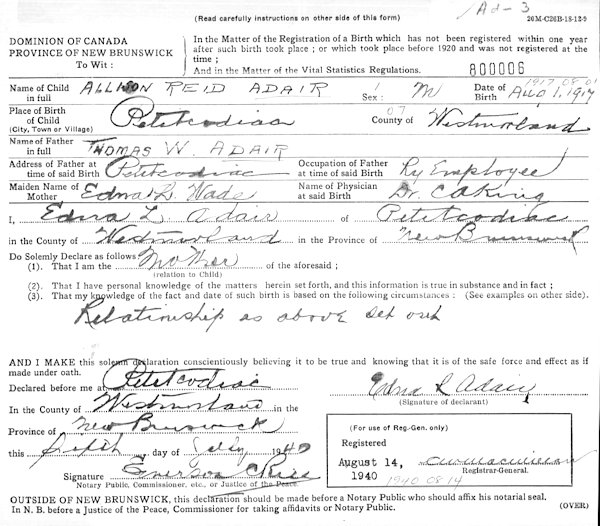 Ad-3
(Read carefully instructions on other side of this form)
20M-C26B-18-12-9
DOMINION OF CANADA
PROVINCE OF NEW BRUNSWICK
To Wit :
In the Matter of the Registration of a Birth which has not been registered within one
year after such birth took place ; or which took place before 1920 and was not registered at the
time ;
And in the Matter of the Vital Statistics Regulations.
800006
Name of Child in full ALLISON REID ADAIR Sex : 1 M Date of Birth 1917 08 01 AUG 1, 1917
Place of Birth of Child (City, Town or Village) Petitcodiac 07 County of Westmorland
Name of Father in full THOMAS W. ADAIR
Address of Father at time of said Birth Petitcodiac Occupation of Father at time of said Birth Ry Employee
Maiden Name of Mother Edna L. Wade Name of Physician at said Birth Dr. CA King
I, Edna L. Adair of Petitcodiac
in the County of Westmorland in the Province of New Brunswick
Do Solemnly Declare as follows
(1). That I am the Mother of the aforesaid ;
(relation to Child)
(2). That I have personal knowledge of the matters herein set forth, and this information is true in substance and in fact ;
(3). That my knowledge of the fact and date of such birth is based on the following circumstances : (See examples on other side).
Relationship as above set out
AND I MAKE this solemn declaration conscientiously believing it to be true and knowing that it is of the safe force and effect as if
made under oath.
Declared before me at Petitcodiac
In the County of Westmorland in the
Province of New Brunswick
this fifth day of July 1940
Signature
Notary Public, Commissioner, etc., or Justice of the Peace.
Edna L Adair
(Signature of declarant)
(For use of Reg-Gen. only)
Registered
August 14,
1940
1940 08 14
Registrar-General.
OUTSIDE OF NEW BRUNSWICK, this declaration should be made before a Notary Public who should affix his notarial seal.
In N. B. before a Justice of the Peace, Commissioner for taking affidavits or Notary Public.
(OVER)